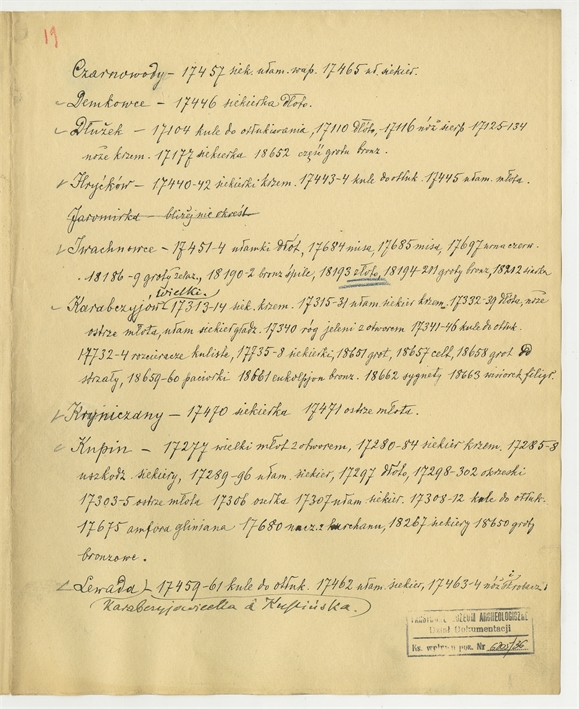 19
Czarnowody – 17457 siek. ułam. wap. 17465 uł. siekier.
Demkowce – 17446 siekierka dłóto.
Dłużek – 17104 kule do otłukiwania, 17110 dłóto, 17116 nóż sierp 17125-134
noże krzem. 17177 siekierka 18652 część grotu bronz.
Hryćków – 17440-42 siekierki krzem. 17443-4 kule do otłuk. 17445 ułam. młota.
Jaromirka – bliżej nie określ
Iwachnowce – 17451-4 ułamki dłót, 17684 misa, 17685 misa, 17697 urna czerw.
18186-9 groty żelaz., 18190-2 bronz śpile, 18193 złoto, 18194-201 groty bronz, 18212 siestra
wielki.
Karabczyjów 17313-14 siek. krzem. 17315-31 ułam. siekier krzem. 17332-39 dłóta, noże
ostrze młota, ułam siekier gładz. 17340 róg jeleni z otworem 17341-46 kule do otłuk.
17732-4 rozcieracze kuliste, 17735-8 siekierki, 18651 grot, 18657 celt, 18658 grot do
strzały, 18659-60 paciorki 18661 enkolpjon bronz. 18662 sygnet, 18663 wisiorek filigr.
Kryniczany – 17470 siekierka 17471 ostrze młota.
Kupin – 17277 wielki młot z otworem, 17280-84 siekier krzem. 17285-8
uszkodz. siekiery, 17289-96 ułam. siekier, 17297 dłóto, 17298-302 okrzeski
17303-5 ostrze młota 17306 osełka 17307 ułam siekier. 17308-12 kule do otłuk.
17675 amfora gliniana 17680 nacz. z kurchanu, 18267 siekiery 18650 groty
bronzowe.
Lewada – 17459-61 kule do otłuk. 17462 ułam. siekier, 17463-4 nóż
(Karabczyjowiecka à Kupińska.)
PAŃSTWOWE MUZEUM ARCHEOLOGICZNE
Dział Dokumentacji
Ks. wpływu poz. Nr